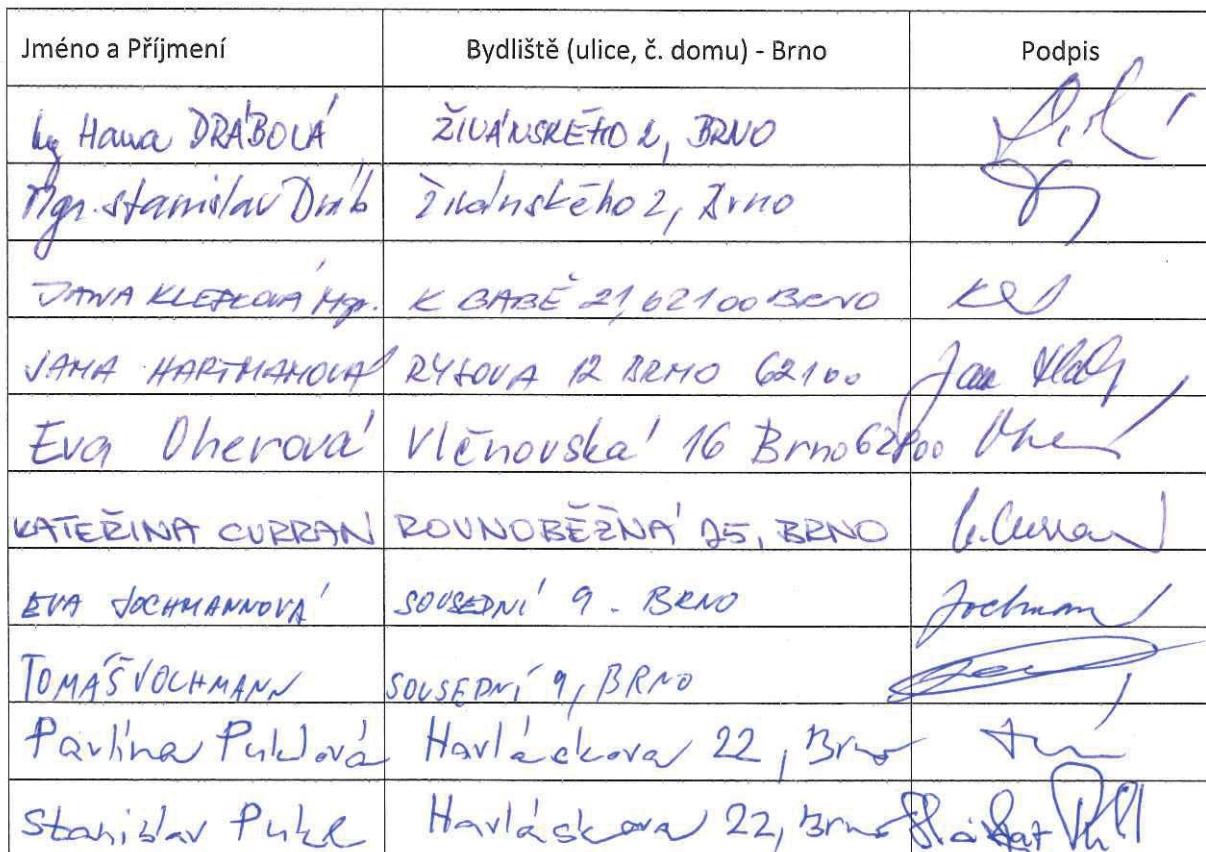 Jméno a Příjmení Bydliště (ulice, č. domu) - Brno Podpis
Ing Hana DRÁBOVÁ ŽIVÁNSKÉHO 2, BRNO
Mgr. Stanislav Dráb Živánského 2, Brno
JANA Mgr. K BABĚ 21, 62100 BRNO
JANA HARTMANOVÁ RYSOVA 12 BRNO 62100
Eva Uherová Vlčnovská 16 Brno 62800
KATEŘINA CURRAN ROVNOBĚŽNÁ 25, BRNO K.Curran
EVA JOCHMANNOVÁ SOUSEDNÍ 9 - BRNO Jochman
TOMÁŠ JOCHMANN SOUSEDNÍ 9, BRNO
Pavlína Puklová Havláskova 22, Brno
Stanislav Pukl Havláskova 22, Brno